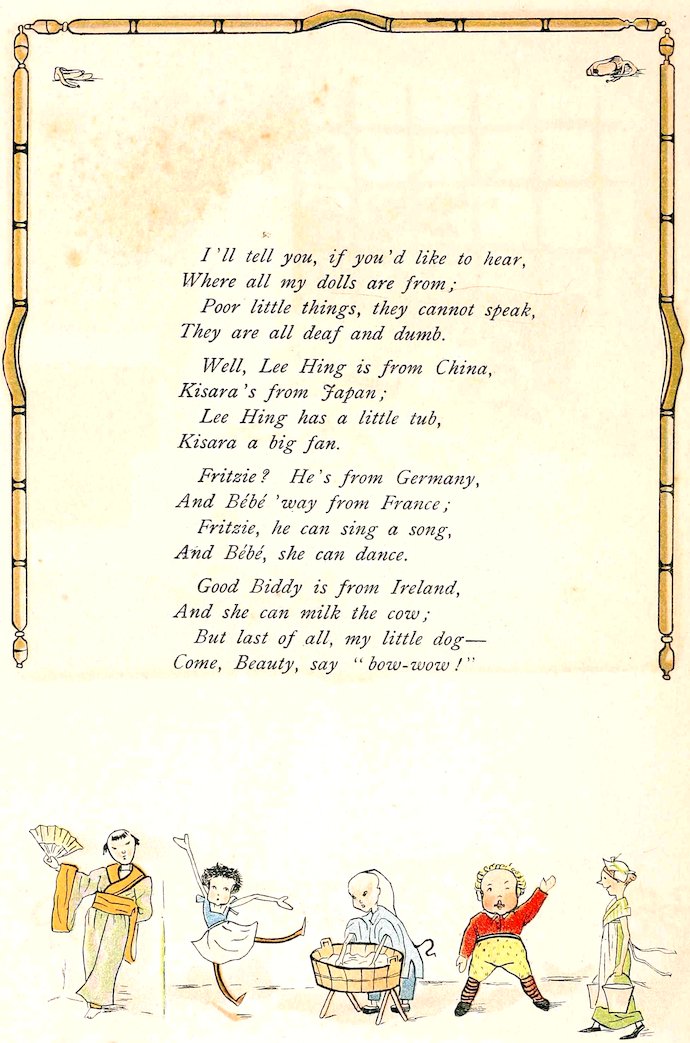 I'll tell you, if you'd like to hear,
Where all my dolls are from;
Poor little things, they cannot speak,
They are all deaf and dumb.
Well, Lee Hing is from China,
Kisara's from Japan;
Lee Hing has a little tub,
Kisara a big fan.
Fritzie? He's from Germany,
And Bébé 'way from France;
Fritzie, he can sing a song,
And Bébé, she can dance.
Good Biddy is from Ireland,
And she can milk the cow;
But last of all, my little dog—
Come, Beauty, say "bow-wow!"